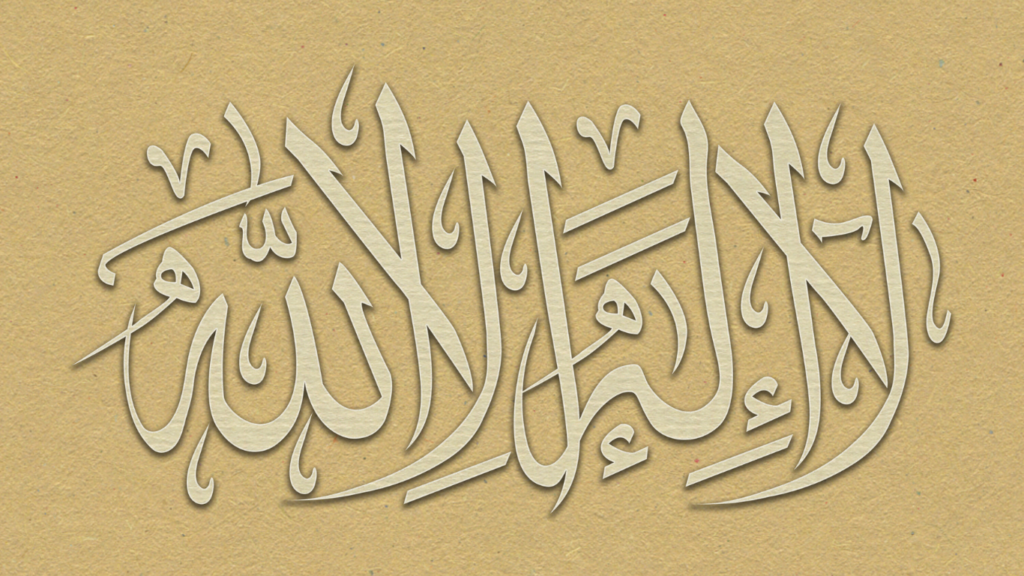 لَا إِلٰهَ إِلَّا اللّٰهُ